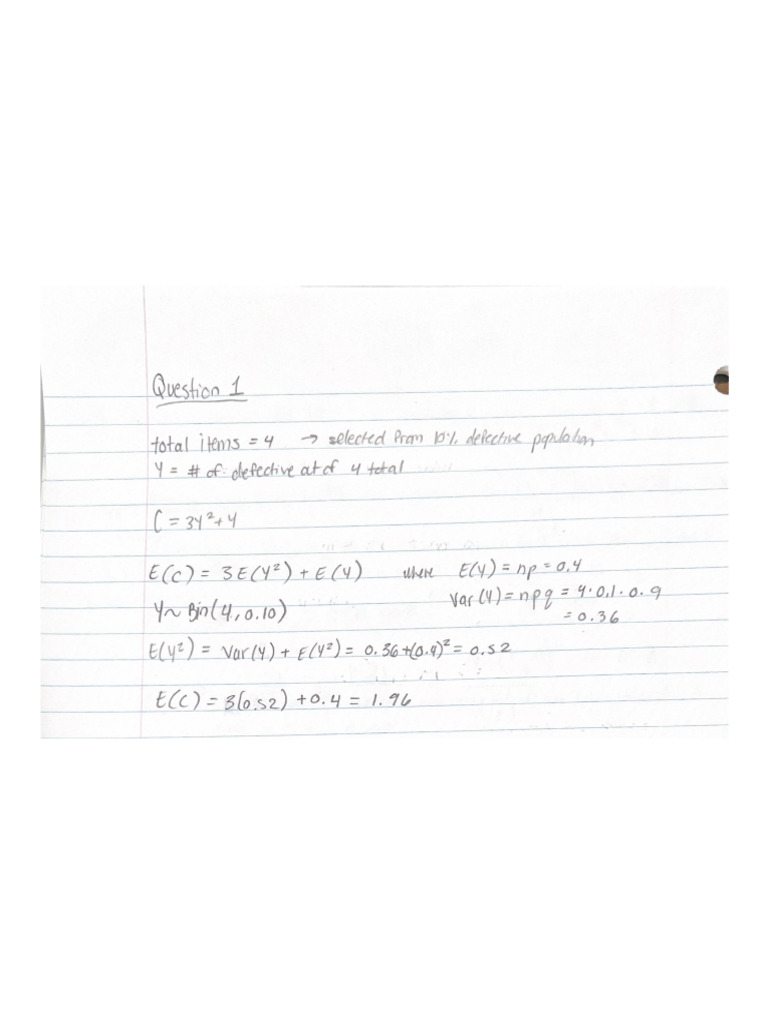 Question 1
total items = 4 → selected from 10% defective population
Y = # of defective out of 4 total
C = 3Y²+Y
E(C) = 3E(Y²) + E(Y) where E(Y) = np = 0.4
Var(Y) = npq = 4·0.1·0.9
Y~ Bin(4, 0.10)
= 0.36
E(Y²) = Var(Y) + E(Y²) = 0.36+(0.4)² = 0.52
E(C) = 3(0.52) + 0.4 = 1.96